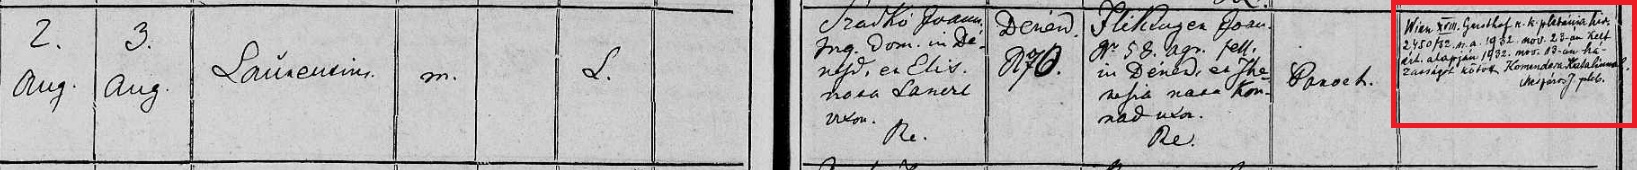 2.
Aug.
3.
Aug.
Laurentius.
m.
L.
Sradkó Joann.
Inq. Dom. in Dé-
nesd, et Elis.
nata Lanerl
uxor.
Re.
Dénesd.
N 70.
Joan.
Nr 58. agr. sell.
in Dénesd, et The-
resia nata Kon-
rad uxor.
Re.
Paroch.
Wien XVIII. Gersthof r. k. plébánia hiv.
2450/32 sz. a. 1932. nov. 23-án kelt
ért. alapján 1932. nov. 13-án há-
zasságot kötött Komendera Katalinnal.
Mészáros J. pleb.